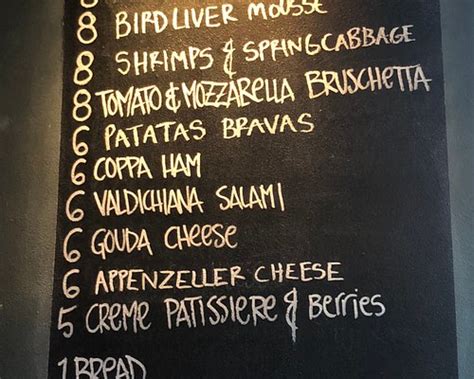 8 BIRD LIVER MOUSSE
8 SHRIMPS & SPRINGCABBAGE
8 TOMATO & MOZZARELLA BRUSCHETTA
6 PATATAS BRAVAS
6 COPPA HAM
6 VALDICHIANA SALAMI
6 GOUDA CHEESE
6 APPENZELLER CHEESE
5 CREME PATISSIERE & Berries
1 BREAD